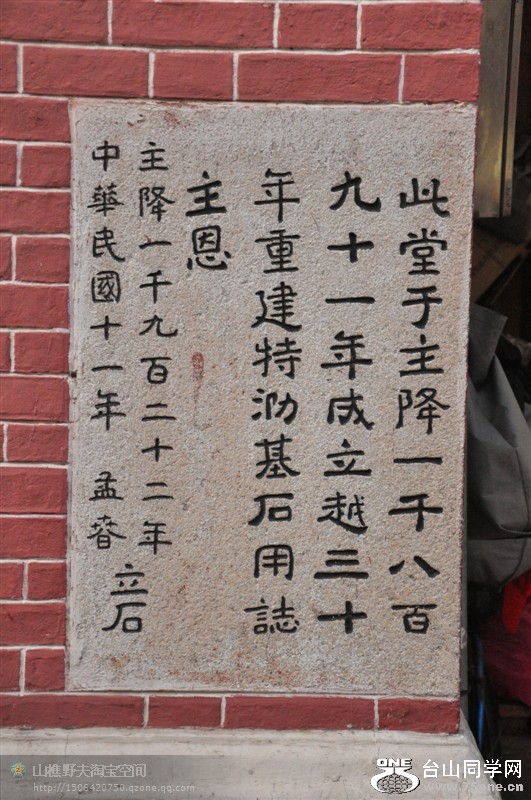 此堂于主降一千八百
九十一年成立越三十
年重建特泐基石用誌
主恩
主降一千九百二十二年
中華民國十一年 孟春
立石
山樵野夫淘宝空间
http://1506420750.qzone.qq.com
ONE
台山同学网
www.75one.cn